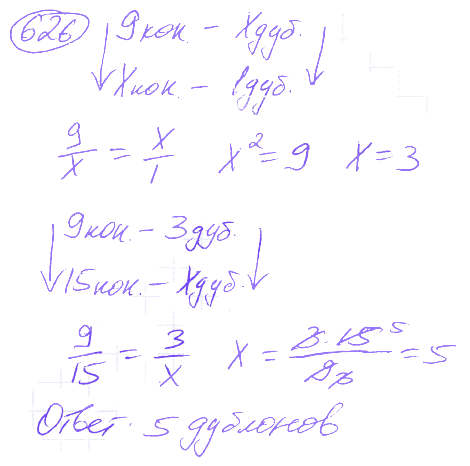 626 9 коп. – X дуб.
X коп. – 1 дуб.
9/X = X/1 X² = 9 X = 3
9 коп. – 3 дуб.
15 коп. – X дуб.
9/15 = 3/X X = 3·15 5/9 3 = 5
Ответ. 5 дублонов